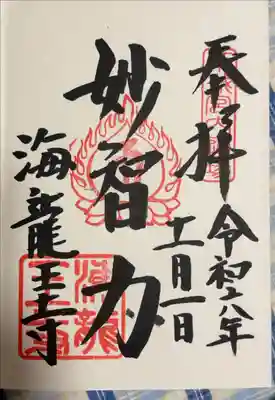 奉拝
令和六年
十一月一日
妙智力
海龍王寺